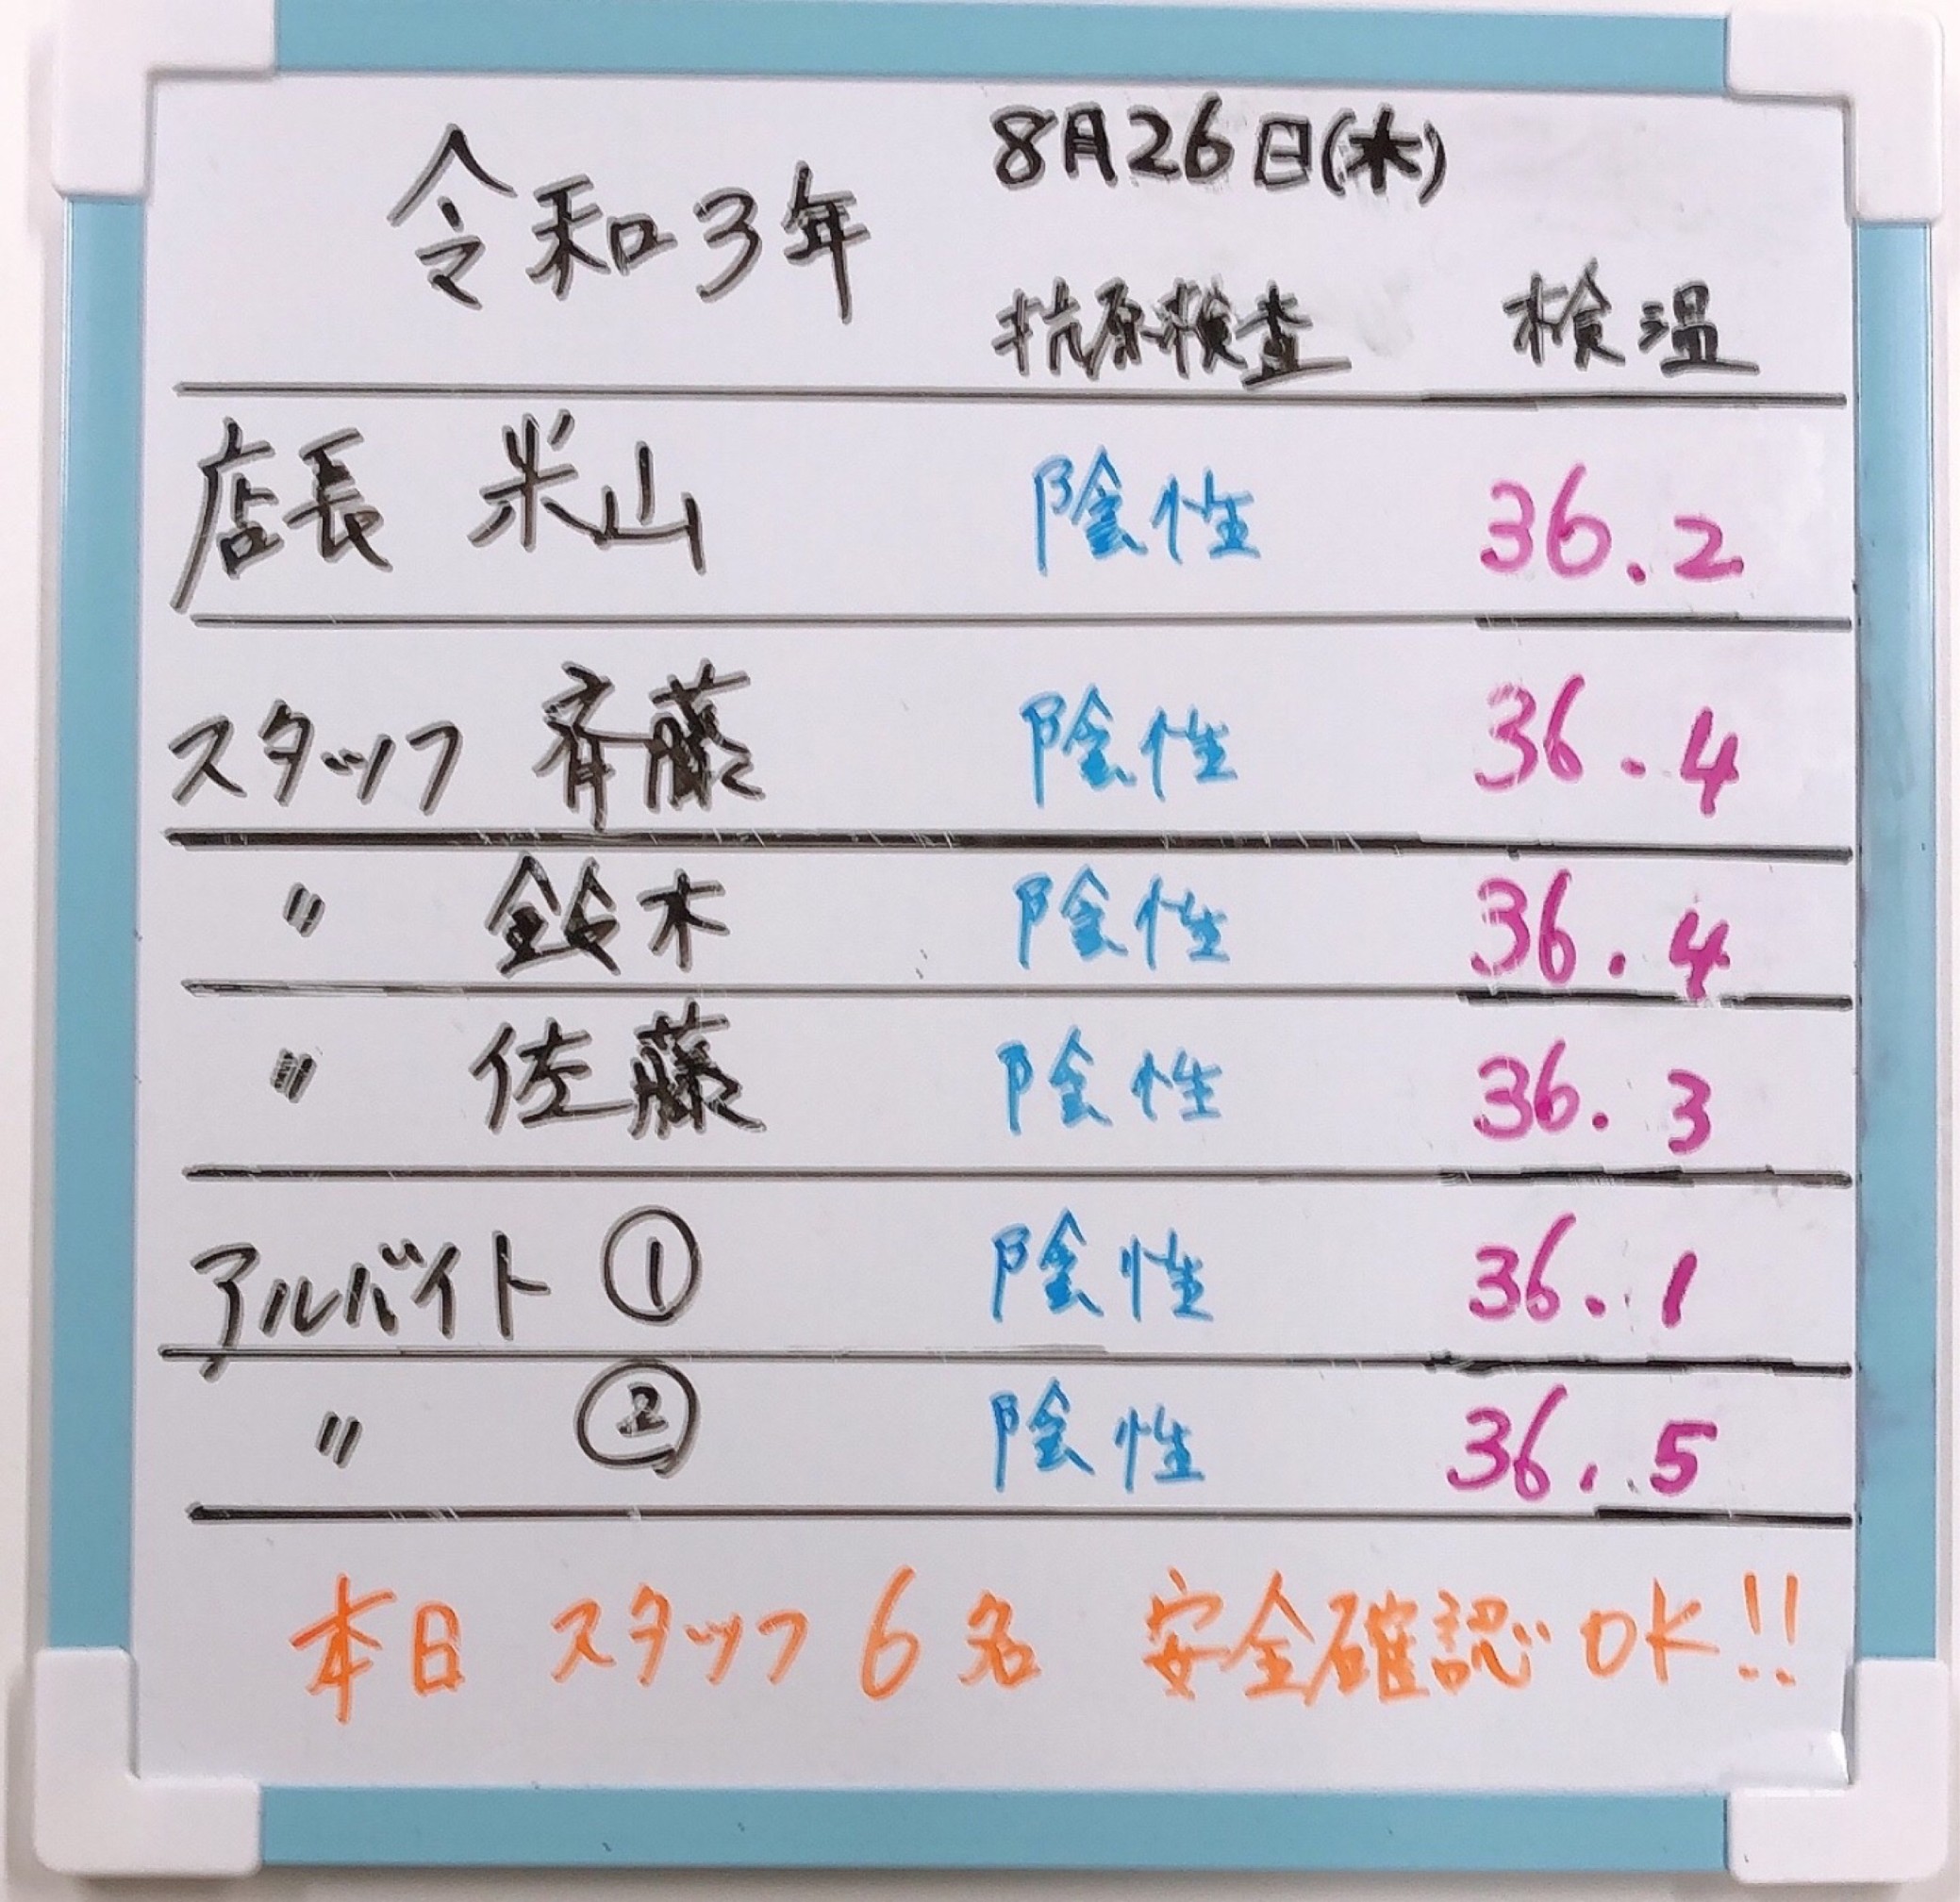 令和3年 8月26日(木)
抗原検査 検温
店長 米山 陰性 36.2
スタッフ 斉藤 陰性 36.4
〃 鈴木 陰性 36.4
〃 佐藤 陰性 36.3
アルバイト ① 陰性 36.1
〃 ② 陰性 36.5
本日 スタッフ6名 安全確認OK!!